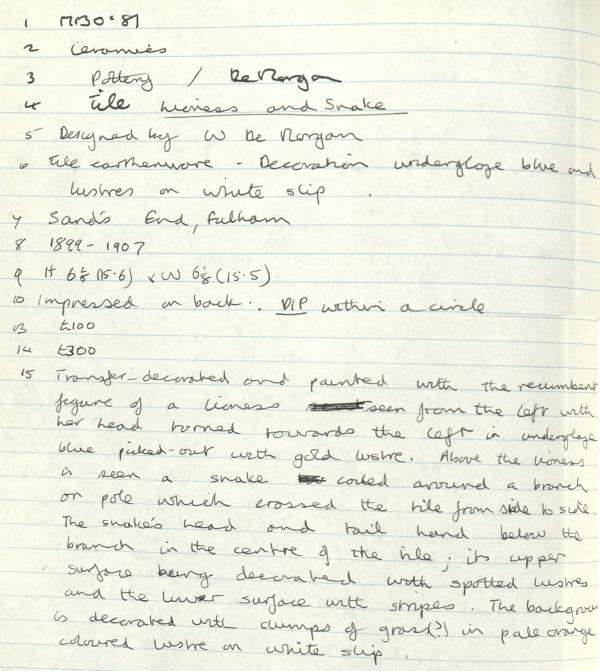 1 MBO·81
2 Ceramics
3 Pottery / De Morgan
4 Tile Lioness and Snake
5 Designed by W De Morgan
6 Tile earthenware - Decoration underglaze blue and
lustres on white slip .
7 Sands End, Fulham
8 1899 - 1907
9 H 6⅛ (15·6) x W 6⅛ (15·5)
10 Impressed on back · . DIP within a circle
03 £100
14 £300
15 Transfer-decorated and painted with the recumbent
figure of a lioness seen from the left with
her head turned towards the left in underglaze
blue picked-out with gold lustre. Above the lioness
is seen a snake coiled around a branch
or pole which crossed the tile from side to side.
The snake's head and tail hand below the
branch in the centre of the tile; its upper
surface being decorated with spotted lustres
and the lower surface with stripes. The backgrou
is decorated with clumps of grass(?) in pale orange
coloured lustre on white slip .